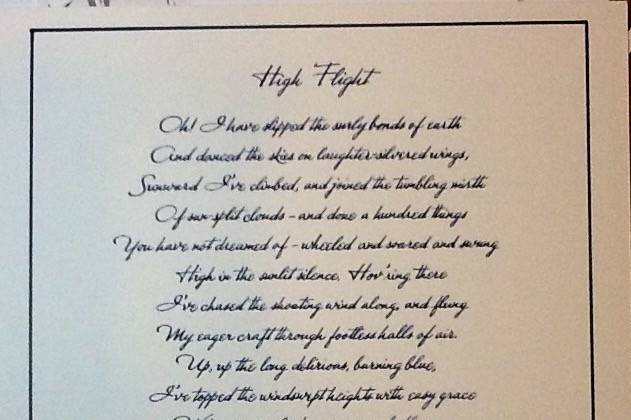 High Flight
Oh! I have slipped the surly bonds of earth
And danced the skies on laughter-silvered wings,
Sunward I've climbed, and joined the tumbling mirth
Of sun-split clouds - and done a hundred things
You have not dreamed of - wheeled and soared and swung
High in the sunlit silence. Hov'ring there
I've chased the shouting wind along, and flung
My eager craft through footless halls of air.
Up, up the long, delirious, burning blue,
I've topped the windswept heights with easy grace